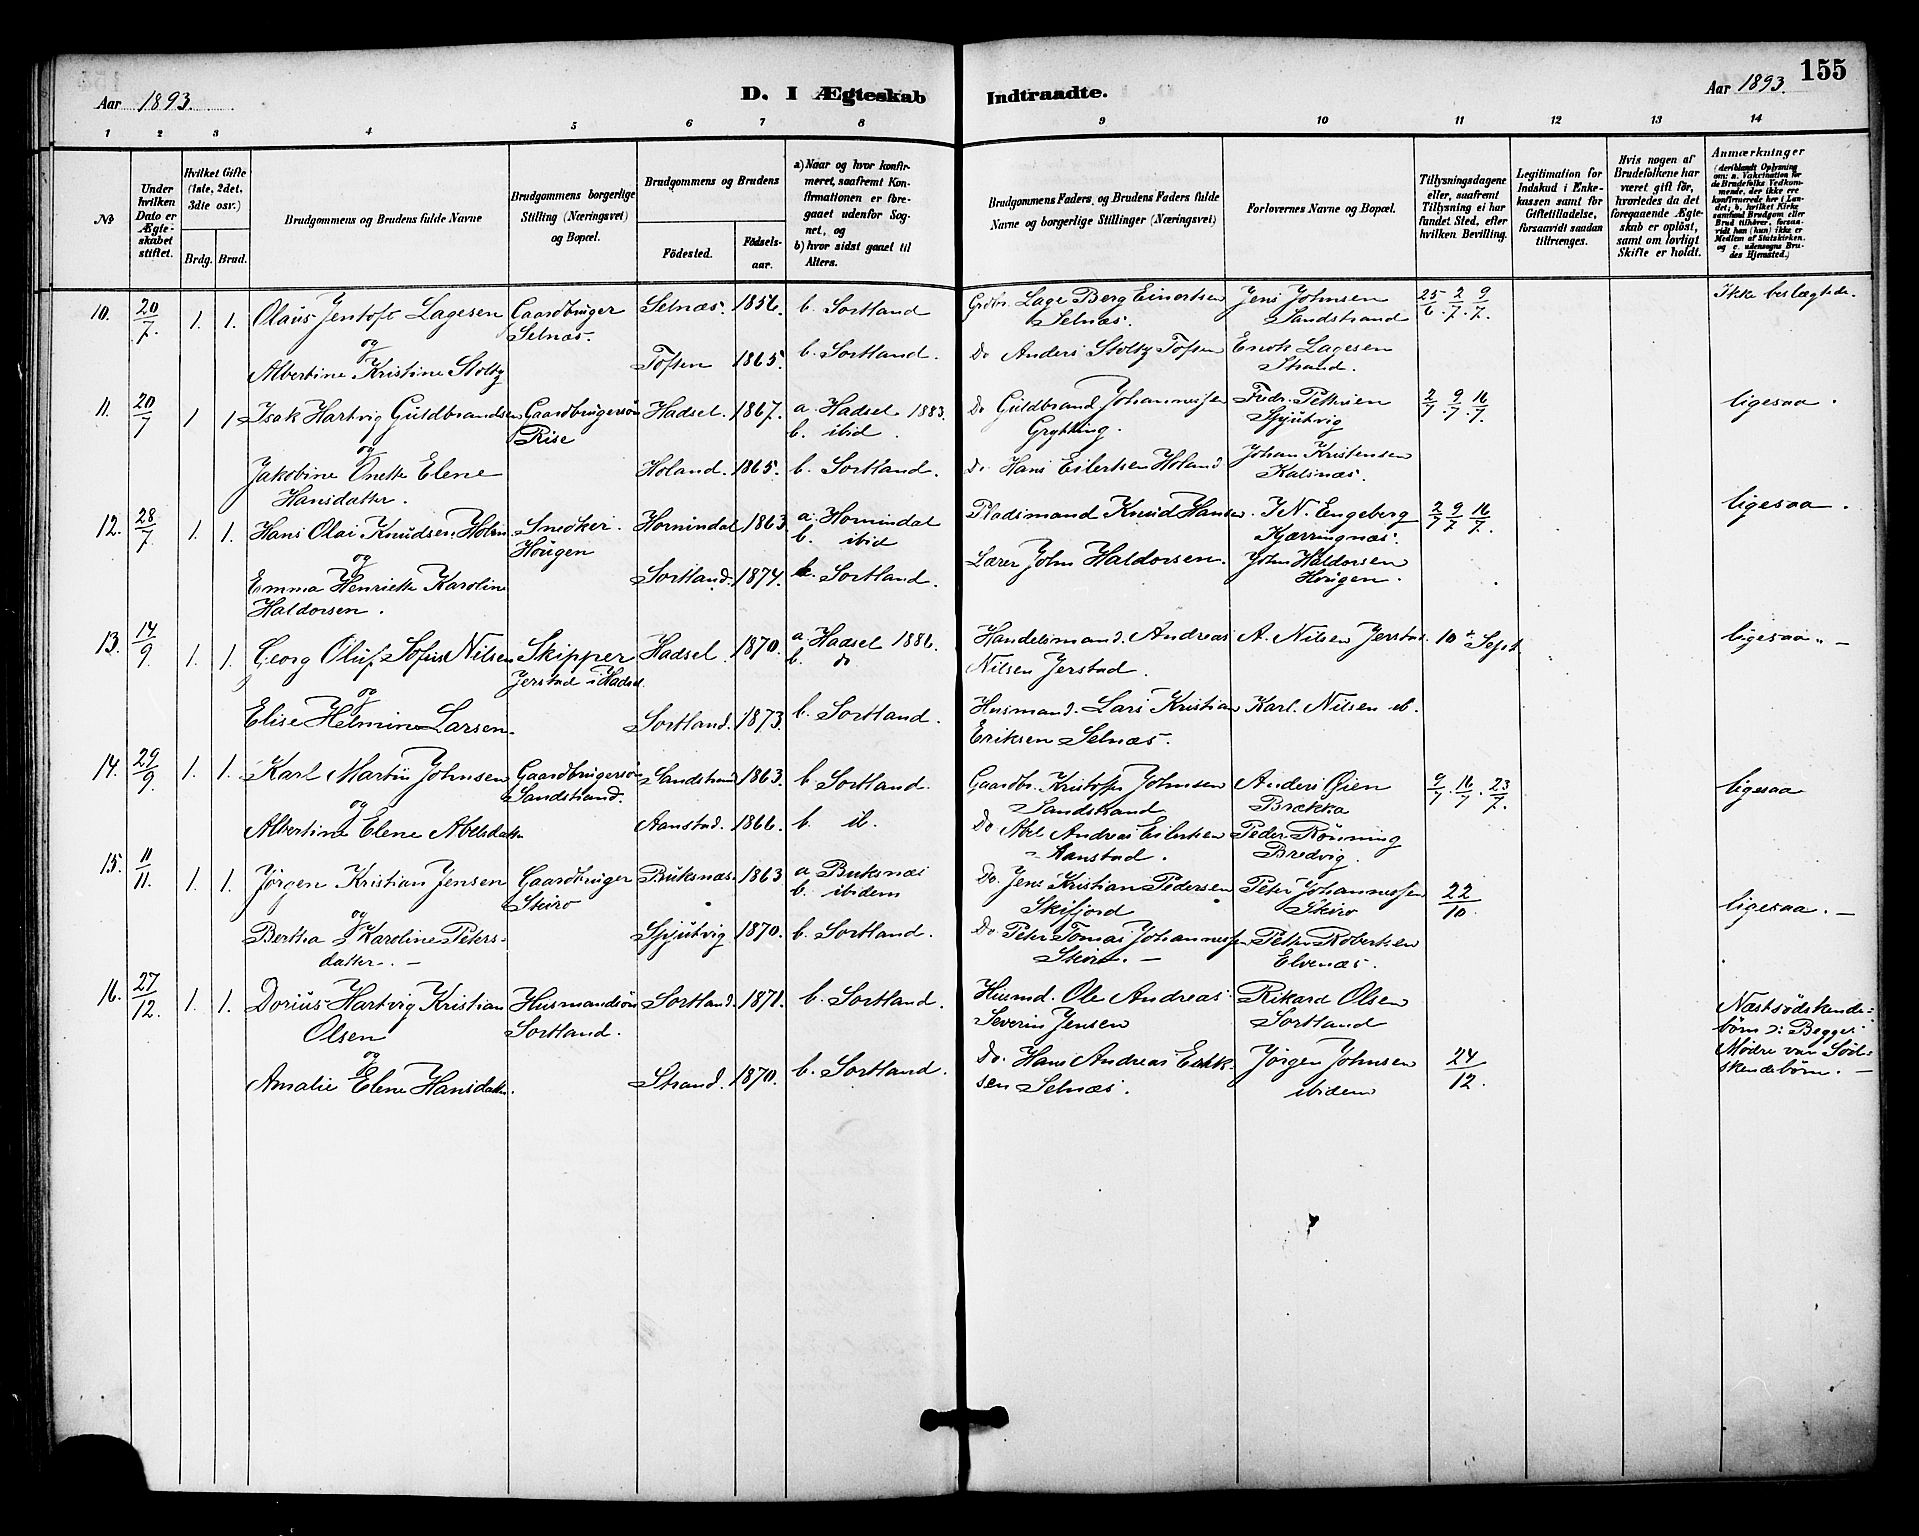 155
Aar 1893.
D. I Ægteskab Indtraadte.
Aar 1893.
1 2 3 4 5 6 7 8 9 10 11 12 13 14
No
Under hvilken Dato er Ægteskabet stiftet.
Hvilket Gifte (1ste, 2det, 3die osv.)
Brdg. Brud.
Brudgommens og Brudens fulde Navne
Brudgommens borgerlige Stilling (Næringsvei) og Bopæl.
Brudgommens og Brudens
Födested.
Födselsaar.
a) Naar og hvor konfirmeret, saafremt Konfirmationen er foregaaet udenfor Sognet, og
b) hvor sidst gaaet til Alters.
Brudgommens Faders, og Brudens Faders fulde Navne og borgerlige Stillinger (Næringsvei)
Forlovernes Navne og Bopæl.
Tillysningsdagene eller, saafremt Tillysning ei har fundet Sted, efter hvilken Bevilling.
Legitimation for Indskud i Enkekassen samt for Giftetilladelse, forsaavidt saadan tiltrænges.
Hvis nogen af Brudefolkene har været gift för, hvorledes da det foregaaende Ægteskab er oplöst, samt om lovligt Skifte er holdt.
Anmærkninger
(deriblandt Oplysning om: a. Vakcination for de Brudefolks Vedkommende, der ikke ere konfirmerede her i Landet, b. hvilket Kirkesamfund Brudgom eller Brud tilhörer, forsaavidt han (hun) ikke er Medlem af Statskirken, og c. udensogns Brudes Hjemsted.)
10. 20/7. 1. 1. Olaus Jentoft Lagesen Gaardbruger Selnæs. 1856. b. Sortland Grdbr. Lage Berg Einertsen Jens Johnsen 25/6. 2/7. 9/7. Ikke beslægtede.
Selnæs. Selnæs. Sandstrand
og
Albertine Kristine Stoltz Toften 1865. b. Sortland. Do Anders Stoltz Toften Enok Lagesen
Strand.
11. 20/7 1 1 Isak Hartvig Guldbrandsen Gaardbrugersøn Hadsel. 1867. a. Hadsel 1883. Do Guldbrand Johannessen Fredr. Pettersen 2/7. 9/7. 16/7. ligesaa.
Rise b. ibid. Grytting. Spjutvig
og
Jakobine Anette Elene Holand. 1865. b. Sortland. Do Hans Eilertsen Holand Johan Kristensen
Hansdatter. Kalsnæs.
12. 28/7 1. 1. Hans Olai Knudsen Holm Snedker. Hornindal 1863. a. Hornindal Pladsmand Knud Hansen. I N. Engeberg 2/7 9/7. 16/7. ligesaa.
Hougen b. ibid Kjærringnæs.
og
Emma Henriette Karoline Sortland. 1874. b. Sortland. Lærer John Haldorsen. John Haldorsen
Haldorsen. Hougen.
13. 14/9. 1. 1. Georg Oluf Sofus Nilsen Skipper Hadsel. 1870. a. Hadsel 1886. Handelsmand. Andreas A. Nilsen Jerstad. 10de Sept ligesaa. —
Jerstad i Hadsel. b. do Nilsen Jerstad.
og
Elise Helmine Larsen. Sortland. 1873. b. Sortland. Husmand. Lars Kristian Karl. Nilsen ib.
Eriksen Selnæs.
14. 29/9. 1. 1. Karl Martin Johnsen Gaardbrugersøn Sandstrand 1863. b. Sortland. Gaardbr. Kristofer Johnsen Anders Øien 9/7. 16/7. 23/7. ligesaa
Sandstrand. Sandstrand Brækka
og
Albertine Elene Abelsdatter Aanstad. 1866. b. ib. Do Abel Andreas Eilertsen Peder Rønning
Aanstad. Bredvig.
15. 11/11. 1. 1. Jørgen Kristian Jensen Gaardbruger Buksnæs. 1863 a Buksnæs Do. Jens Kristian Pedersen Peter Johannessen 22/10. ligesaa. —
Skiro b. ibidem Skifjord Skiro
og
Bertha Karoline Petersdatter. — Spjutvig 1870. b. Sortland. Do Peter Tomas Johannessen Petter Robertsen
Skiro. — Elvenæs.
16. 27/12. 1. 1. Dorius Hartvig Kristian Husmandsøn Sortland. 1871. b. Sortland. Husmd. Ole Andreas Rikard Olsen Næstsødskende-
Olsen Sortland. Severin Jensen Sortland børn ɔ: Begges
og Mødre var Sød-
Amalie Elene Hansdatter. Strand. 1870. b. Sortland. Do. Hans Andreas Erik- Jørgen Johnsen 24/12. skendebørn. —
sen Selnæs. ibidem